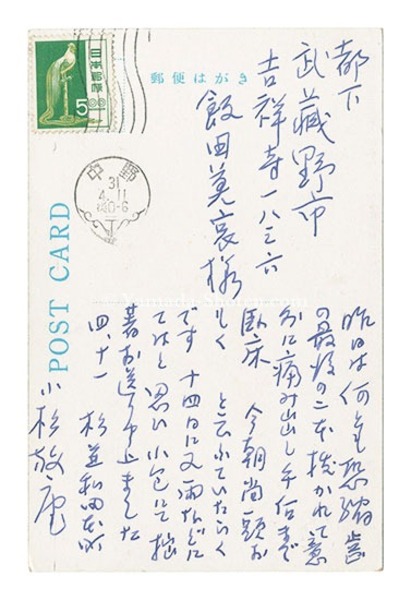 日本郵便
5.00
郵便はがき
中野
31
4.11
后0-6
POST CARD
都下
武蔵野市
吉祥寺一八三六
飯田莫哀様
昨日は何とも恐縮 歯
の最後の二本抜かれて意
外に痛み出し手伝まで
臥床 今朝尚一頭お
もく と云ふていたらく
です 十四日に又雨などに
てはと思ひ小包にて拙
著お送り申上ました
四、十一
杉並和田本町
小杉放庵